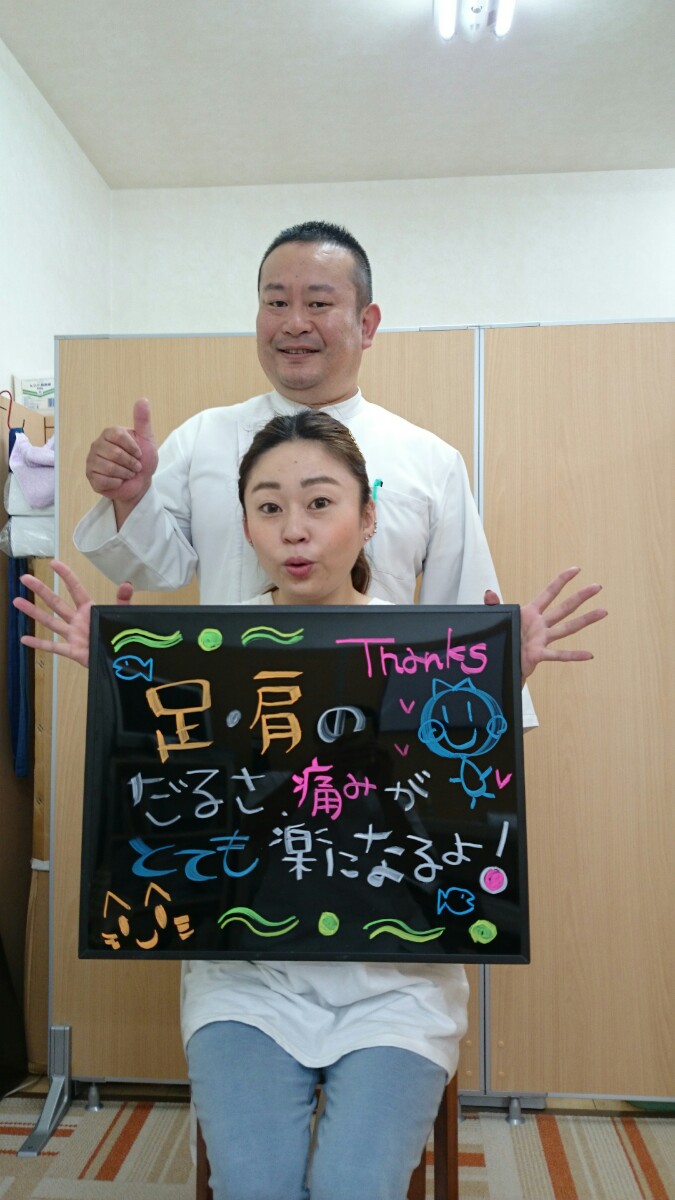 Thanks
足・肩の
だるさ、痛みが
とても楽になるよ!